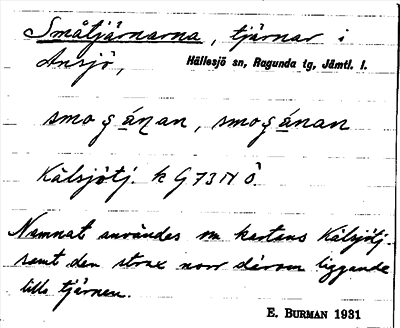 Småtjärnarna, tjärnar i
Ansjö, Hällesjö sn, Ragunda tg, Jämtl. l.
smogánan, smogánan
Kälsjötj. k G 73 N Ö.
Namnat användes om kartans Kälsjötj.
samt den strax norr därom liggande
lilla tjärnen.
E. BURMAN 1931